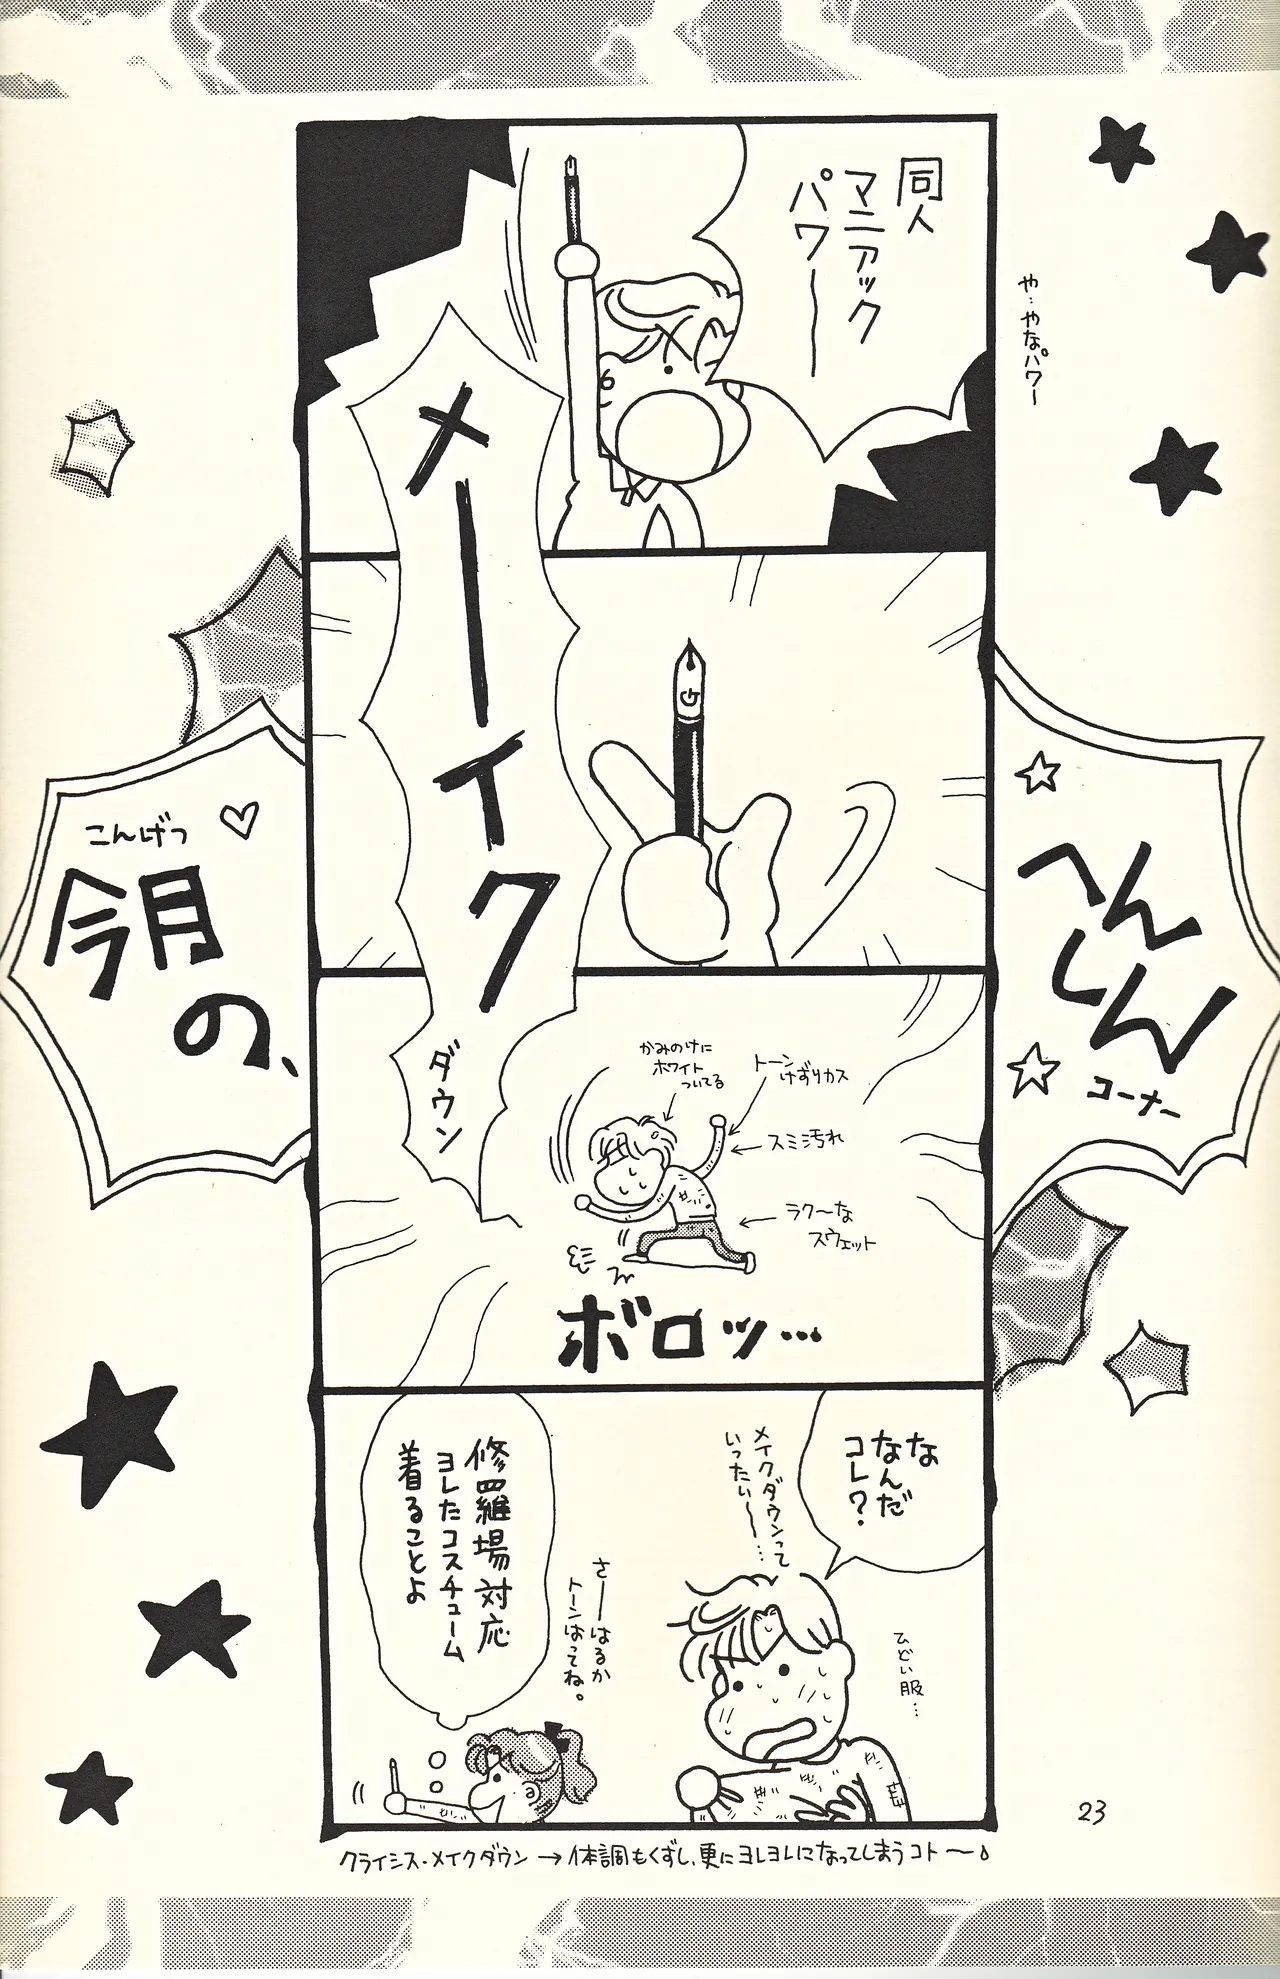 同人
マニアック
パワー
や…やなパワー
メーイク
へん
しん
コーナー
こんげつ
今月
の、
ダウン
かみのけに
ホワイト
ついてる
トーン
けずりカス
スミ汚れ
ラク〜な
スウェット
ボロッ…
な
なんだ
コレ?
メイクダウンって
いったい〜…
ひどい服…
修羅場対応
ヨレたコスチューム
着ることよ
さーはるか
トーンはってね。
23
クライシス・メイクダウン→体調もくずし、更にヨレヨレになってしまうコト〜